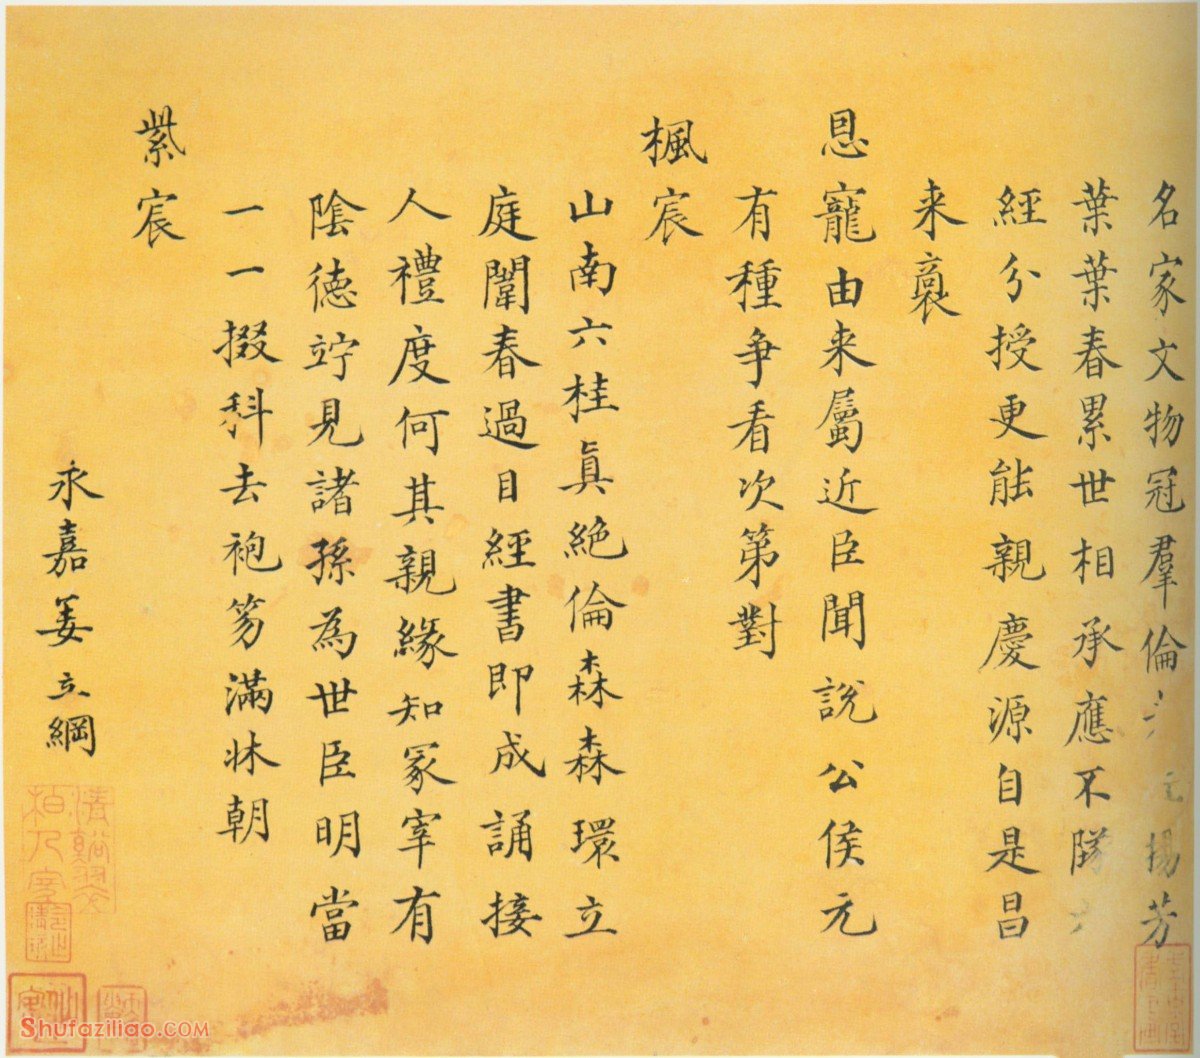 名家文物冠羣倫揚芳
葉葉春累世相承應不隊
經分授更能親慶源自是昌
来裔
恩寵由来屬近臣聞說公侯元
有種争看次第對
楓宸
山南六桂真絶倫森森環立
庭闈春過目經書即成誦接
人禮度何其親緣知冢宰有
陰德竚見諸孫為世臣明當
一一掇科去袍笏滿牀朝
紫宸
永嘉姜立綱
Shufaziliao.COM